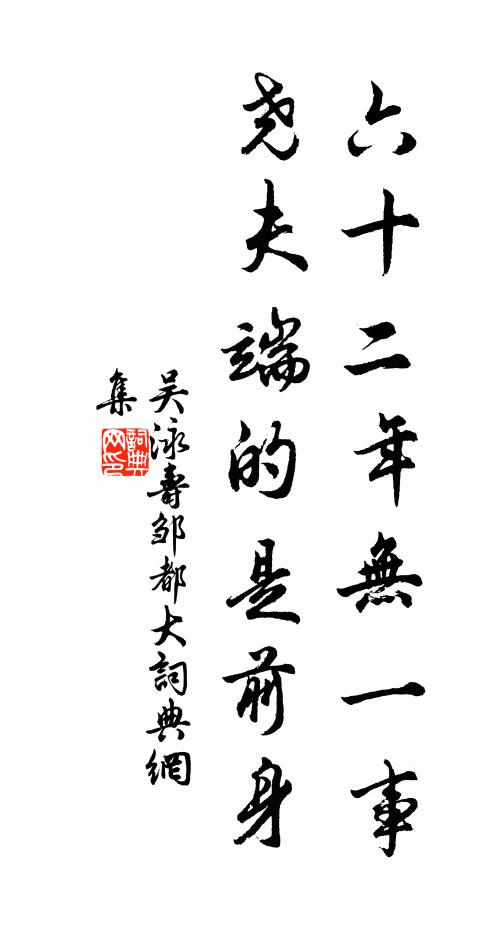 六十二年無一事
尧夫端的是前身
吴泳壽邹都大詞典網
集
詞典网印